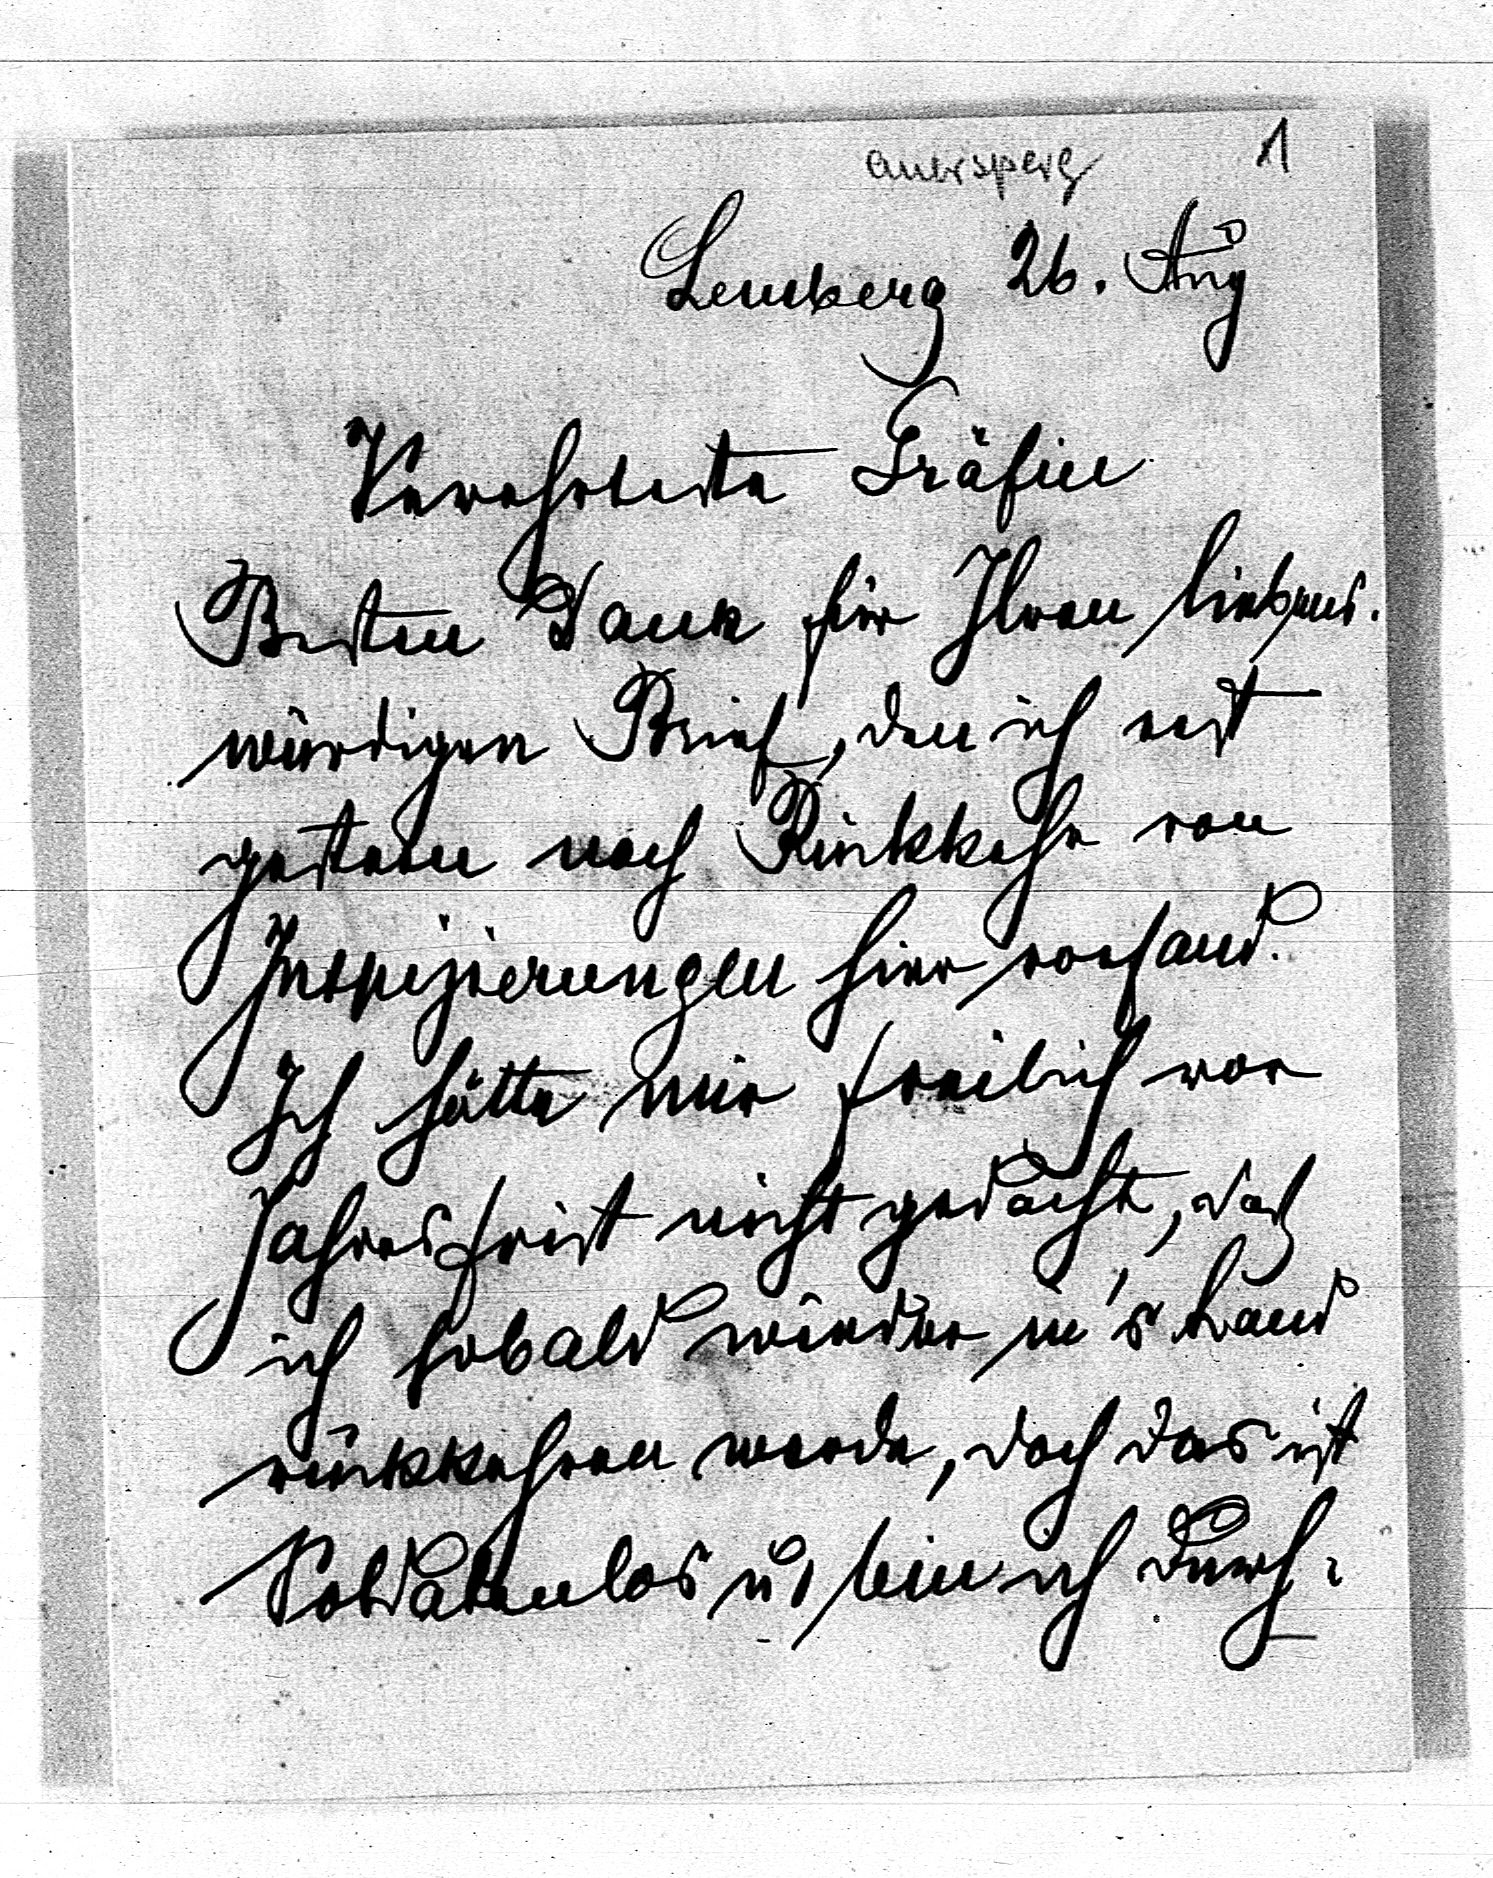 Auersperg 1
Lemberg 26. Aug
Verehrteste Gräfin
Besten Dank für Ihren liebens-
würdigen Brief, den ich erst
gestern nach Rückkehr von
Inspizierungen hier vorfand.
Ich hätte mir freilich vor
Jahresfrist nicht gedacht, daß
ich sobald wieder in's Land
rückkehren werde, doch das ist
Soldatenlos u. bin ich durch-